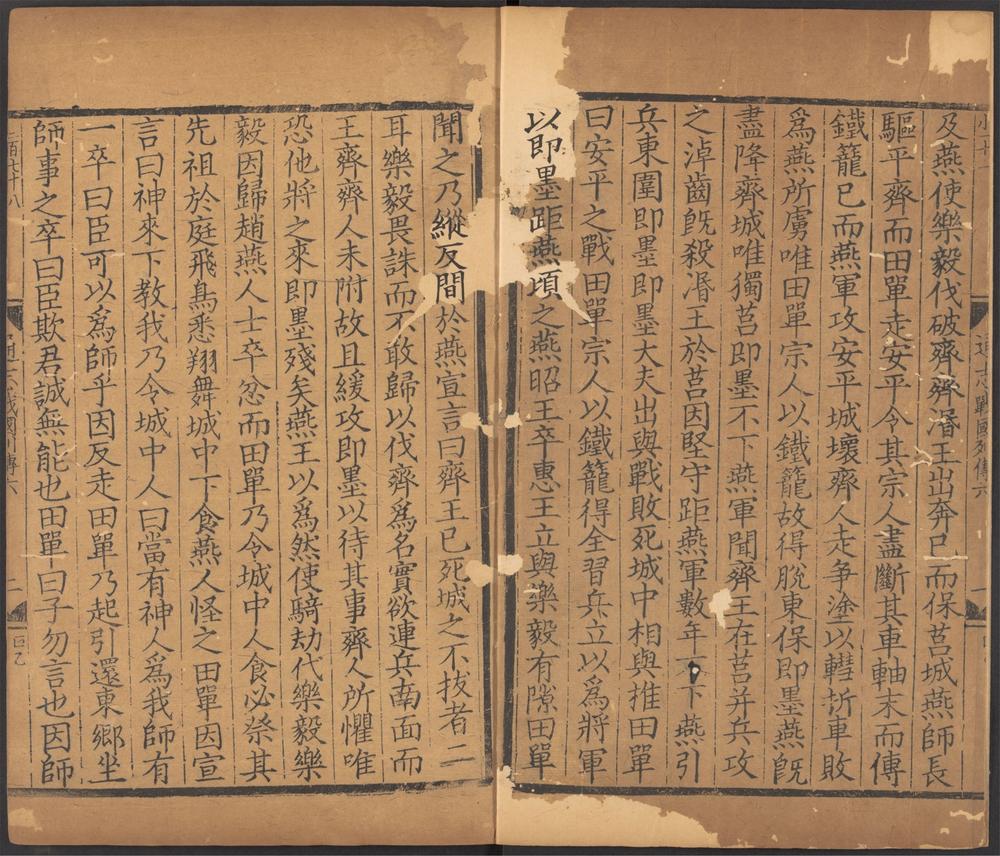 通志戰國列傳六
及燕使樂毅伐破齊齊湣王出奔已而保莒城燕師長
驅平齊而田單走安平令其宗人盡斷其車軸末而傳
鐵籠已而燕軍攻安平城壞齊人走争塗以轊折車敗
爲燕所虜唯田單宗人以鐵籠故得脫東保即墨燕旣
盡降齊城唯獨莒即墨不下燕軍聞齊王在莒并兵攻
之淖齒旣殺湣王於莒因堅守距燕軍數年不下燕引
兵東圍即墨即墨大夫出與戰敗死城中相與推田單
曰安平之戰田單宗人以鐵籠得全習兵立以爲將軍
以即墨距燕頃之燕昭王卒惠王立與樂毅有隙田單
聞之乃縱反間於燕宣言曰齊王已死城之不拔者二
耳樂毅畏誅而不敢歸以伐齊爲名實欲連兵南面而
王齊齊人未附故且緩攻即墨以待其事齊人所懼唯
恐他將之來即墨殘矣燕王以爲然使騎劫代樂毅樂
毅因歸趙燕人士卒忿而田單乃令城中人食必祭其
先祖於庭飛鳥悉翔舞城中下食燕人怪之田單因宣
言曰神來下教我乃令城中人曰當有神人爲我師有
一卒曰臣可以爲師乎因反走田單乃起引還東鄉坐
師事之卒曰臣欺君誠無能也田單曰子勿言也因師